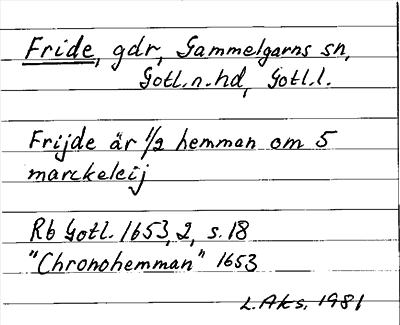 Fride, gdr, Gammelgarns sn,
Gotl.n.hd, Gotl.l.
Frijde är 1/2 hemman om 5
marckeleij
Rb Gotl. 1653, 2, s. 18
"Chronohemman" 1653
L. Aks. 1981